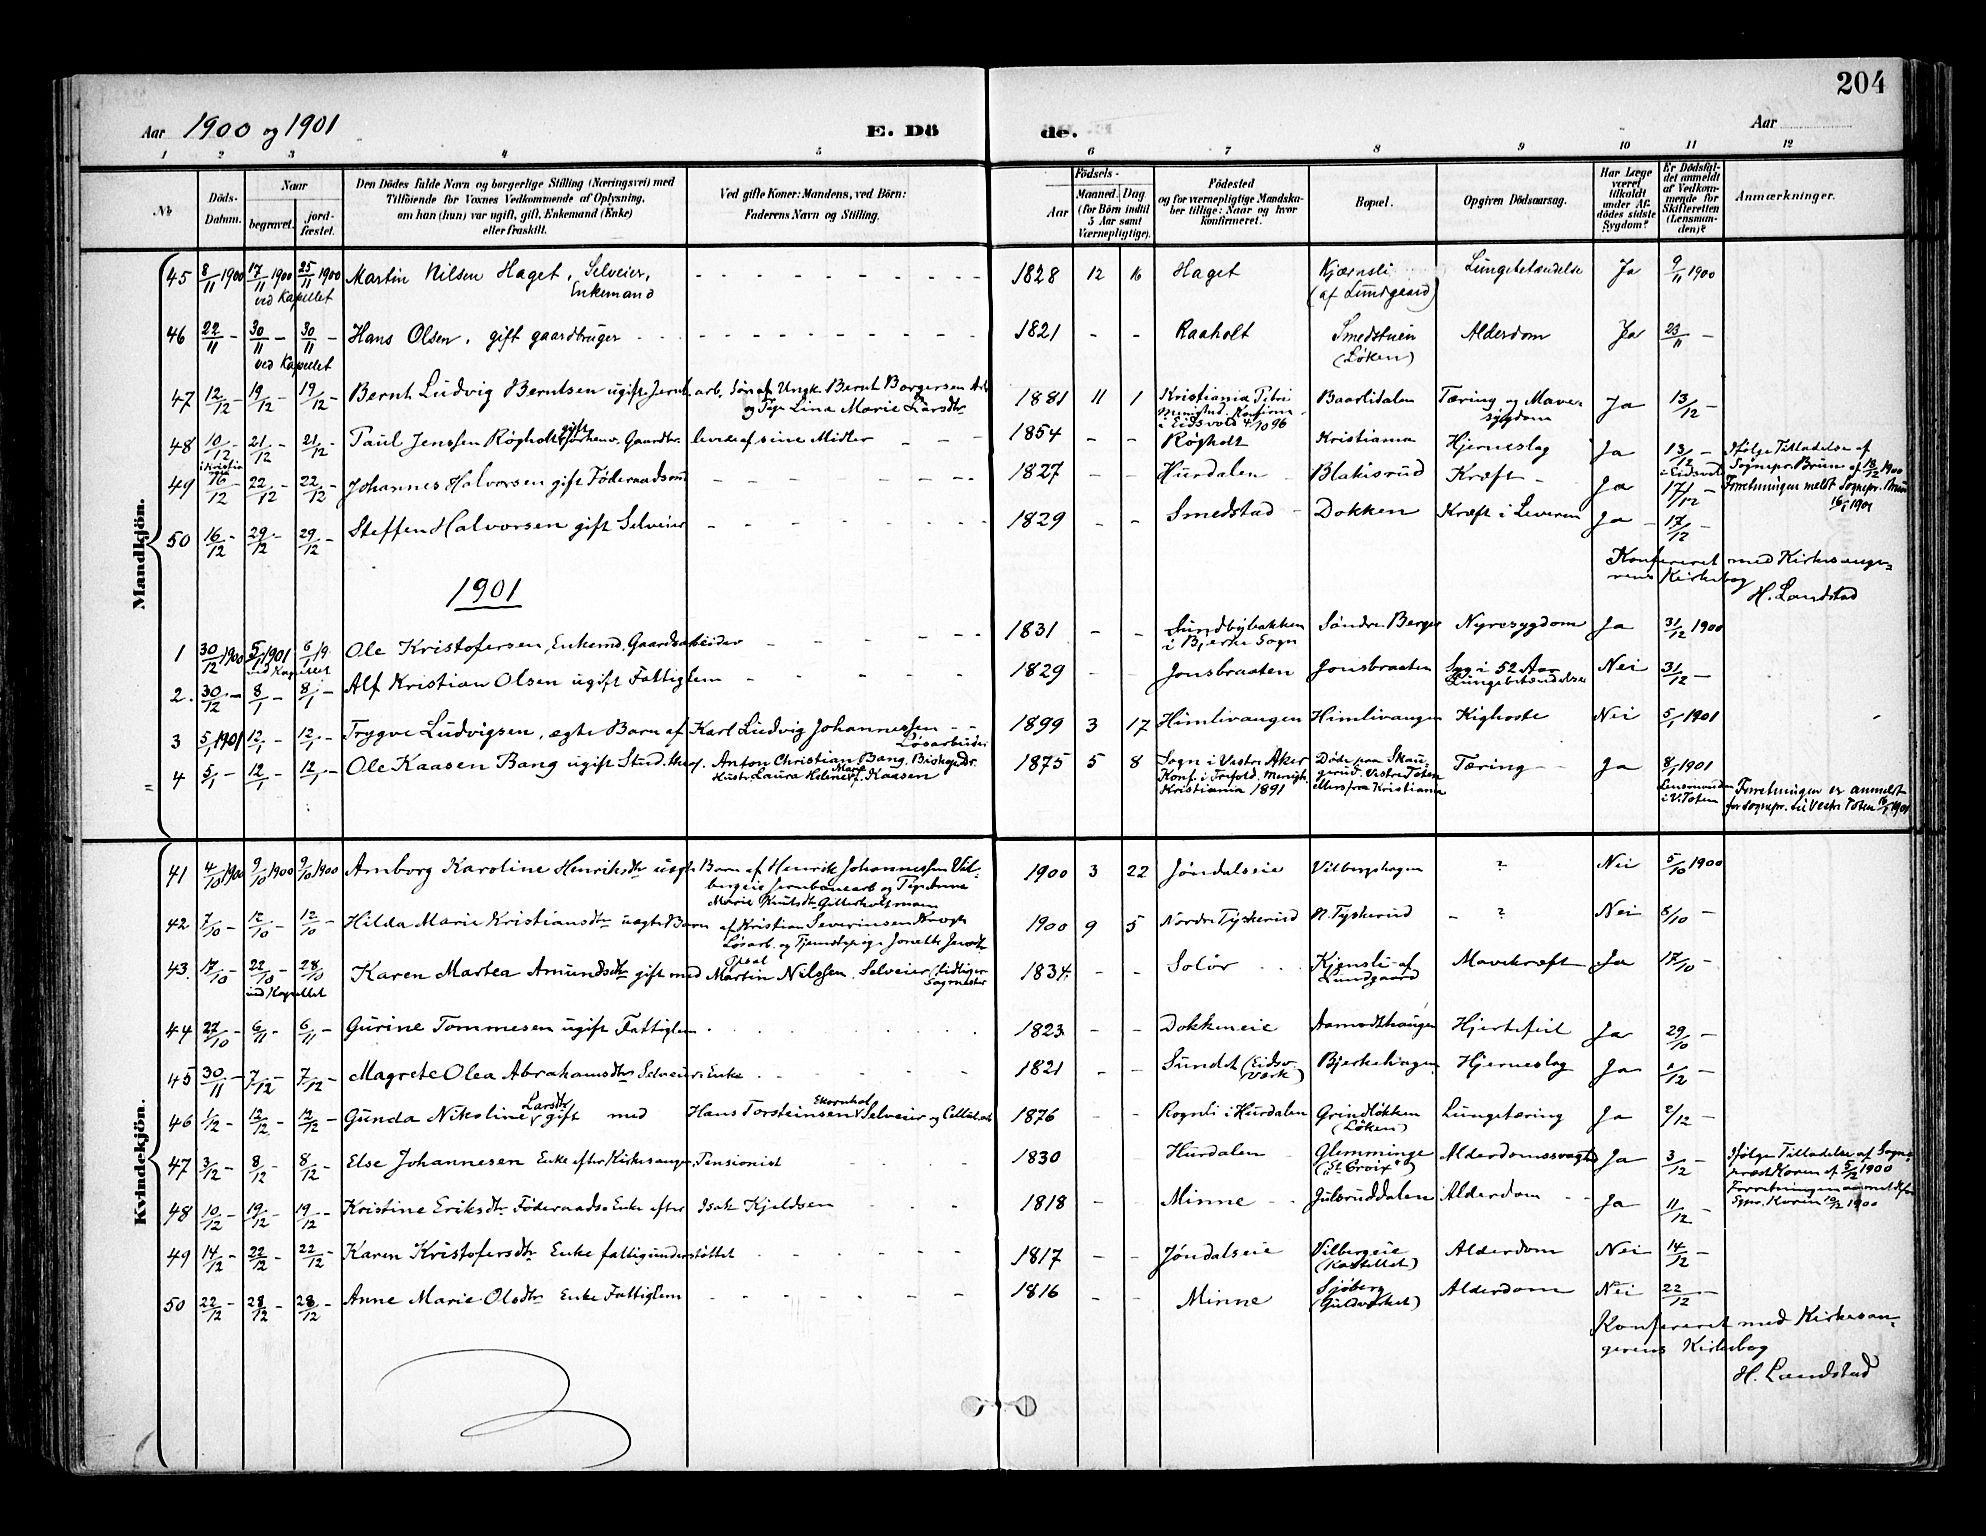 204
Aar 1900 og 1901 E. Dö de. Aar
1 2 3 4 5 6 7 8 9 10 11 12
No Döds-Datum. Naar begravet. jord-fæstet. Den Dödes fulde Navn og borgerlige Stilling (Næringsvei) med Tilföiende for Voxnes Vedkommende af Oplysning, om han (hun) var ugift, gift, Enkemand (Enke) eller fraskilt. Ved gifte Koner: Mandens, ved Börn: Faderens Navn og Stilling. Födsels- Aar Maaned. Dag (for Börn indtil 5 Aar samt Værnepligtige). Födested og for værnepligtige Mandskaber tillige: Naar og hvor konfirmeret. Bopæl. Opgiven Dödsaarsag. Har Læge været tilkaldt under Afdödes sidste Sygdom? Er Dödsfaldet anmeldt af Vedkommende for Skifteretten (Lensmanden)? Anmærkninger.
Mandkjön.
45 8/11 1900 17/11 1900 25/11 1900 Martin Nilsen Haget, Selveier, 1828 12 16 Haget Kjærnsli Lungebetændelse Ja 9/11 1900
ved Kapellet Enkemand (af Lundgaard)
46 22/11 - 30/11 - 30/11 - Hans Olsen, gift gaardbruger 1821 - - Raaholt Smedstuen Alderdom Ja 23/11 -
ved Kapellet (Löken)
47 12/12 - 19/12 - 19/12 - Bernt Ludvig Berntsen ugift Jernb. arb. Søn af Ungk. Bernt Borgersen 1881 11 1 Kristiania Petri Baarlidalen Tæring og Mave- Ja 13/12 -
og Pige Lina Marie Larsdtr. Menighed. Konfirm. sygdom
i Eidsvold 4/10 96
48 10/12 - 21/12 - 21/12 - Paul Jenssen Røgholt gift forhenv. Gaardbr. lever af sine Midler 1854 - - Røgholt Kristiania Hjerneslag Ja 13/12 - Ifølge Tilladelse af
i Kristiania i Eidsvold Sognepr. Bruun af 18/12 1900
49 16/12 22/12 - 22/12 - Johannes Halvorsen gift Föderaadsmd 1827 - - Hurdalen Blakisrud Kræft - Ja 17/12 - Forretningen meldt Sognepr. Bruun
16/1 1901
50 16/12 - 29/12 - 29/12 - Steffen Halvorsen gift Selveier 1829 - - Smedstad Dokken Kræft i Leveren Ja - 17/12 -
Konfereret med Kirkesange-
rens Kirkebog
H. Landstad
1901
1 30/12 1900 5/1 1901 6/1 19 Ole Kristofersen, Enkemd. Gaardsarbeider 1831 - - Sundbybakken Søndre Berger Nyresygdom Ja 31/12 1900
ved Kapellet i Bjerke Sogn
2. 30/12 - 8/1 - 8/1 - Alf Kristian Olsen ugift Fattiglem 1829 - - Jonsbraaten Jonsbraaten Syg i 52 Aar Nei 31/12 -
Lungebetændelse
3 5/1 1901 12/1 - 12/1 - Trygve Ludvigsen, ægte Barn af Karl Ludvig Johannessen 1899 3 17 Himlivangen Himlivangen Kighoste Nei 5/1 1901
Løsarbeider
4 5/1 - 12/1 - 12/1 - Ole Kaasen Bang ugift Stud. theol. Anton Christian Bang, Biskop 1875 5 8 Sogn i Vestre Aker Döde paa Skau- Tæring Ja 8/1 1901
Hustr. Laura Helene Marie f. Kaasen Konf. i Trefold. Menigh. gerud. Vestre Toten Lensmanden Forretningen er anmeldt
Kristiania 1891 ellers fra Kristiania i V. Toten for Sognepr. til Vestre Toten 16/1 1901
Kvindekjön.
41 4/10 1900 9/10 1900 9/10 1900 Amborg Karoline Henriksdtr uægte Barn af Henrik Johannessen Vil- 1900 3 22 Jøndalseie Vilberghagen ? Nei 5/10 1900
bergeie Jernbanearb og Pige Anna
Marie Knutsdtr Gillerholtmoen
42 7/10 - 12/10 - 12/10 - Hilda Marie Kristiansdtr uægte Barn af Kristian Severinsen 1900 9 5 Nordre Tyskerud N. Tyskerud - ? Nei 8/10 -
Løsarb. og Tjenstepige Jonette Jensdtr
Opsal
43. 17/10 - 22/10 - 28/10 - Karen Martea Amundsdtr gift med Martin Nilssen, Selveier (tidligere 1834. - - Solör Kjernsli af Mavekræft Ja 17/10 -
ved Kapellet Sagmester Lundgaard
44 27/10 - 6/11 - 6/11 - Gurine Tommesen ugift Fattiglem 1823 - - Dokkeneie Aamodthaugen Hjertefeil Ja 29/10 -
45 30/11 - 7/12 - 7/12 - Magrete Olea Abrahamsdtr Selveiers Enke 1821 - - Sundet (Eidsv. Bjerkehagen Hjerneslag Ja 1/12 -
Værk)
46 1/12 - 12/12 - 12/12 - Gunda Nikoline Larsdtr gift med Hans Torsteinsen Ekornhol Selveier og 1876 - - Rognli i Hurdalen Grindløkken Lungetæring Ja 2/12 -
(Løken)
47 3/12 - 8/12 - 8/12 - Else Johannesen Enke efter Kirkesanger, Pensionist 1830 - - Hurdalen - Glemminge Alderdomssvaghed Ja 3/12 - Ifølge Tilladelse af Sogne-
("St. Croix") præst Koren af 5/12 1900
48 10/12 - 19/12 - 19/12 - Kristine Eriksdtr Föderaads Enke efter Isak Kjeldsen 1818 - - Minne Julsruddalen Alderdom Ja 11/12 - Forretningen anmeldt for
Sgpr. Koren 10/12 1900
49 14/12 - 22/12 - 22/12 - Karen Kristofersdtr Enke fattigunderstøttet 1817 - - Jøndalseie Vilbergeie Alderdom Nei 14/12 -
(Kastellet)
50 22/12 - 28/12 - 28/12 - Anne Marie Olsdtr Enke Fattiglem 1816 - - Minne Sjøberg Alderdom Nei 22/12 -
(Guldverket)
Konfereret med Kirkesan-
gerens Kirkebog
H. Landstad